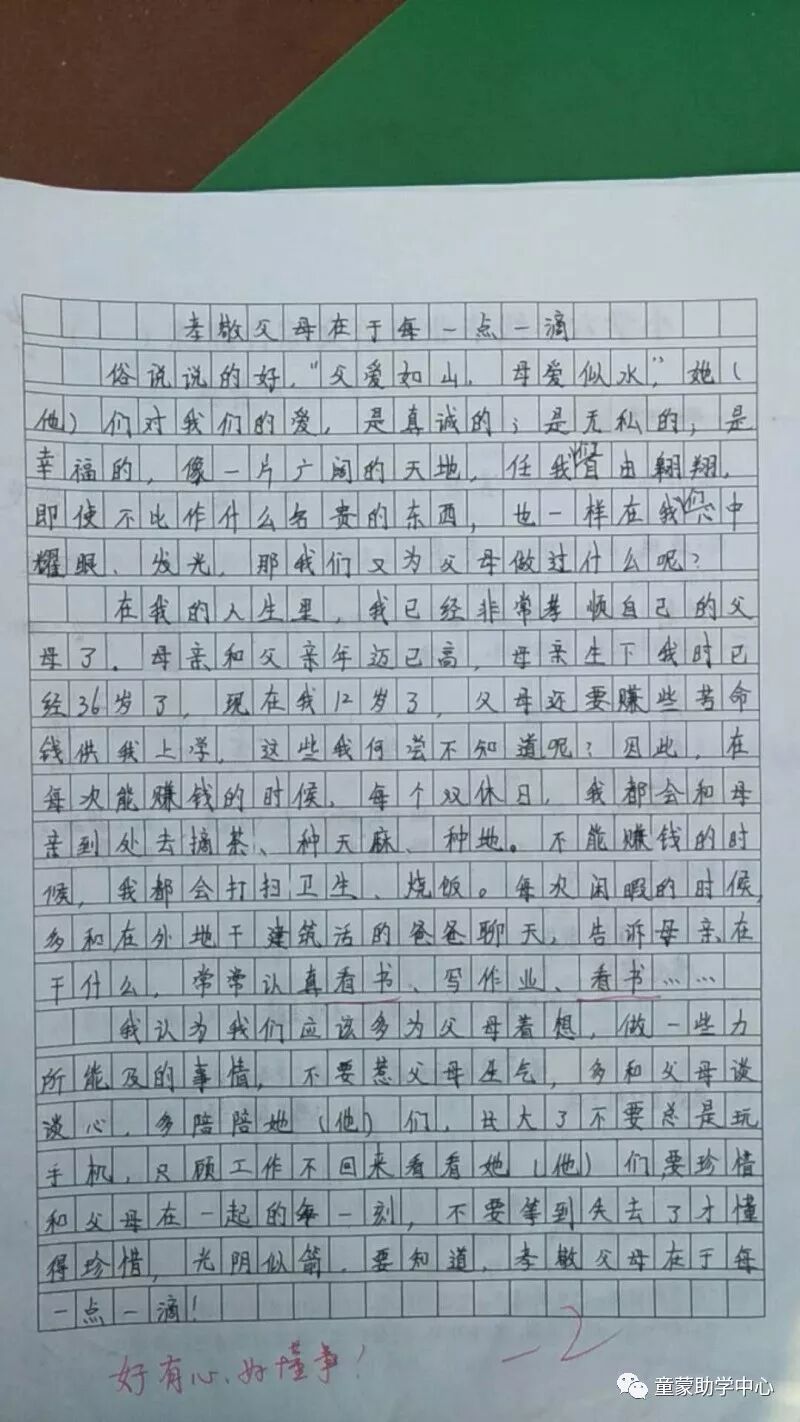 孝敬父母在于每一点一滴
俗说说的好，“父爱如山，母爱似水”，她（
他）们对我们的爱，是真诚的；是无私的；是
幸福的，像一片广阔的天地，任我们自由翱翔，
即使不比作什么名贵的东西，也一样在我们心中
耀眼、发光，那我们又为父母做过什么呢？
在我的人生里，我已经非常孝顺自己的父
母了。母亲和父亲年迈已高，母亲生下我时已
经36岁了，现在我12岁了，父母还要赚些苦命
钱供我上学，这些我何尝不知道呢？因此，在
每次能赚钱的时候，每个双休日，我都会和母
亲到处去摘茶、种天麻、种地。不能赚钱的时
候，我都会打扫卫生、烧饭。每次闲暇的时候，
多和在外地干建筑活的爸爸聊天，告诉母亲在
干什么，常常认真看书、写作业、看书……
我认为我们应该多为父母着想，做一些力
所能及的事情，不要惹父母生气，多和父母谈
谈心，多陪陪她（他）们，长大了不要总是玩
手机，只顾工作不回来看看她（他）们，要珍惜
和父母在一起的每一刻，不要等到失去了才懂
得珍惜，光阴似箭，要知道，孝敬父母在于每
一点一滴！
好有心、好懂事！
-2
童蒙助学中心